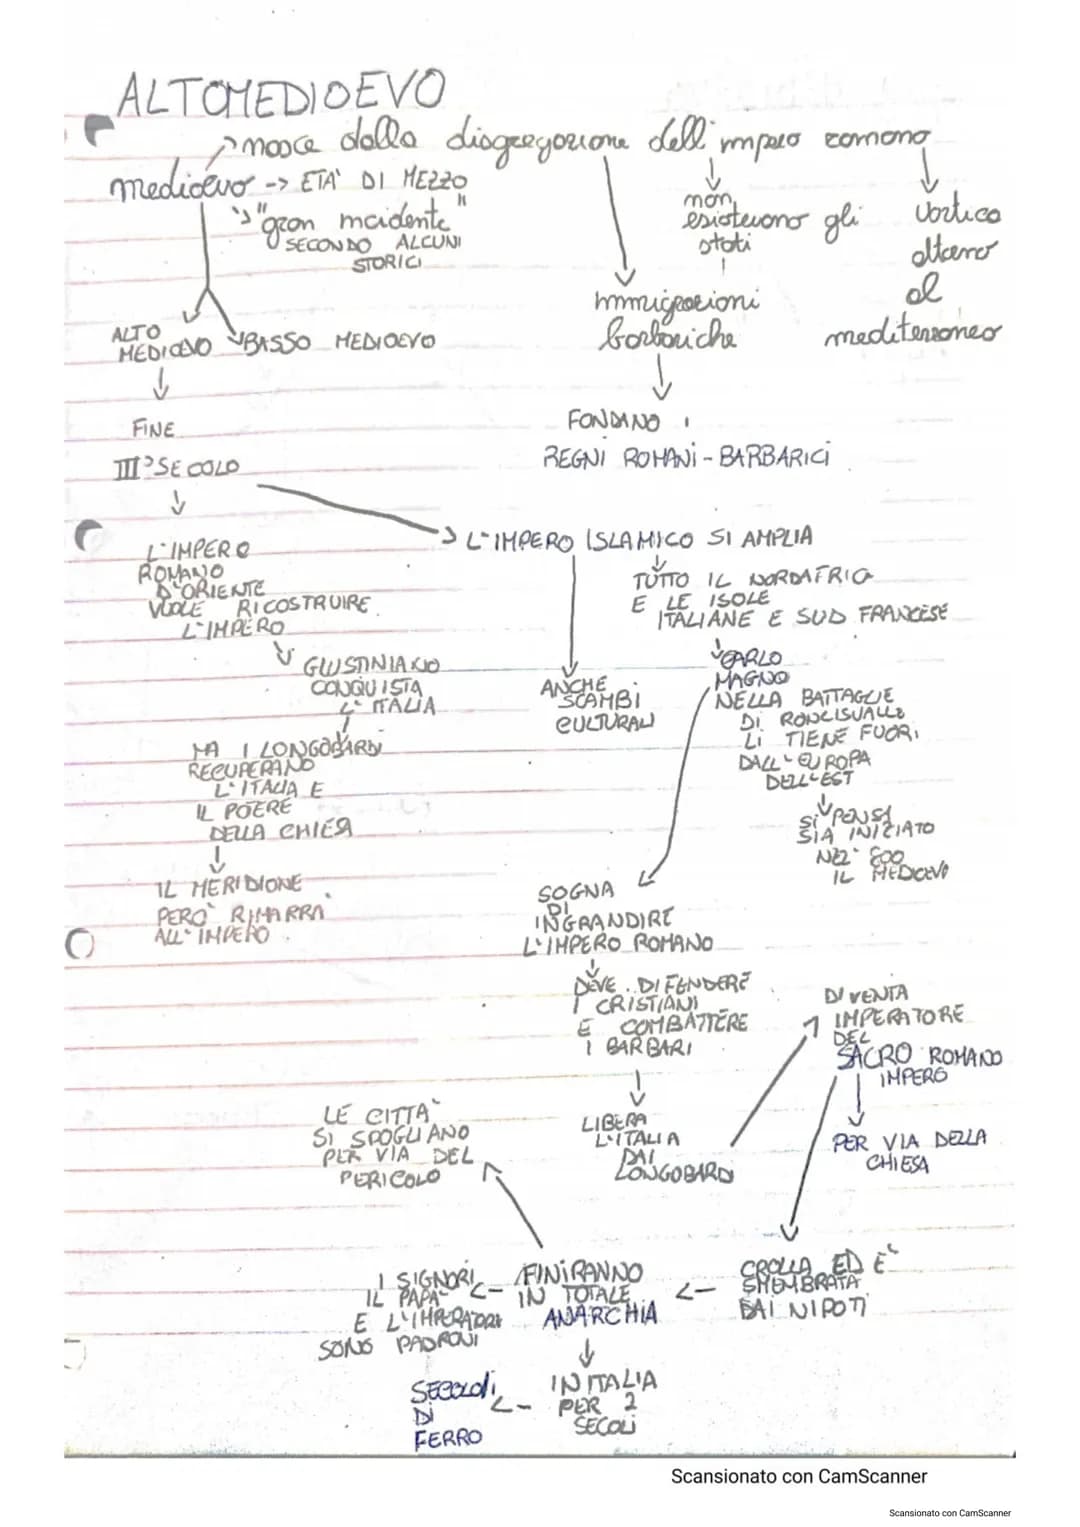 ALTOMEDIOEVO
nasce dalla disgregazione dell'impero romano
medioevo -> ETA' DI MEZZO
"gran incidente"
SECONDO ALCUNI
STORICI
non
esistevano gli
stati
Vortica
attorno
al
mediterraneo
immigrazioni
barbariche
ALTO
MEDIOEVO
BASSO MEDIOEVO
FINE
III° SECOLO
FONDANO I
REGNI ROMANI-BARBARICI
L'IMPERO ISLAMICO SI AMPLIA
L'IMPERO
ROMANO
D'ORIENTE
VUOLE RICOSTRUIRE
L'IMPERO
TUTTO IL NORDAFRICA
E LE ISOLE
ITALIANE E SUD FRANCESE
GIUSTINIANO
CONQUISTA
L'ITALIA
ANCHE
SCAMBI
CULTURALI
CARLO
MAGNO
NELLA BATTAGLIE
DI RONCISVALLE
LI TIENE FUORI
DALL'EUROPA
DELL'EST
MA I LONGOBARDI
RECUPERANO
L'ITALIA E
IL POERE
DELLA CHIESA
SI PENSA
SIA INIZIATO
NELL' 800
IL MEDIOEVO
IL MERIDIONE
PERO' RIMARRA'
ALL'IMPERO
SOGNA
DI
INGRANDIRE
L'IMPERO ROMANO
DEVE DIFENDERE
I CRISTIANI
E COMBATTERE
I BARBARI
DIVENTA
IMPERATORE
DEL
SACRO ROMANO
IMPERO
LE CITTA'
SI SPOGLIANO
PER VIA DEL
PERICOLO
LIBERA
L'ITALIA
DAI
LONGOBARDI
PER VIA DELLA
CHIESA
I SIGNORI
IL PAPA
E L'IMPERATORE
SONO PADRONI
<- FINIRANNO
IN TOTALE
ANARCHIA
<- CROLLA ED E'
SMEMBRATA
DAI NIPOTI
IN ITALIA
PER 2
SECOLI
<- SECOLO DI
DI
FERRO
Scansionato con CamScanner
Scansionato con CamScanner